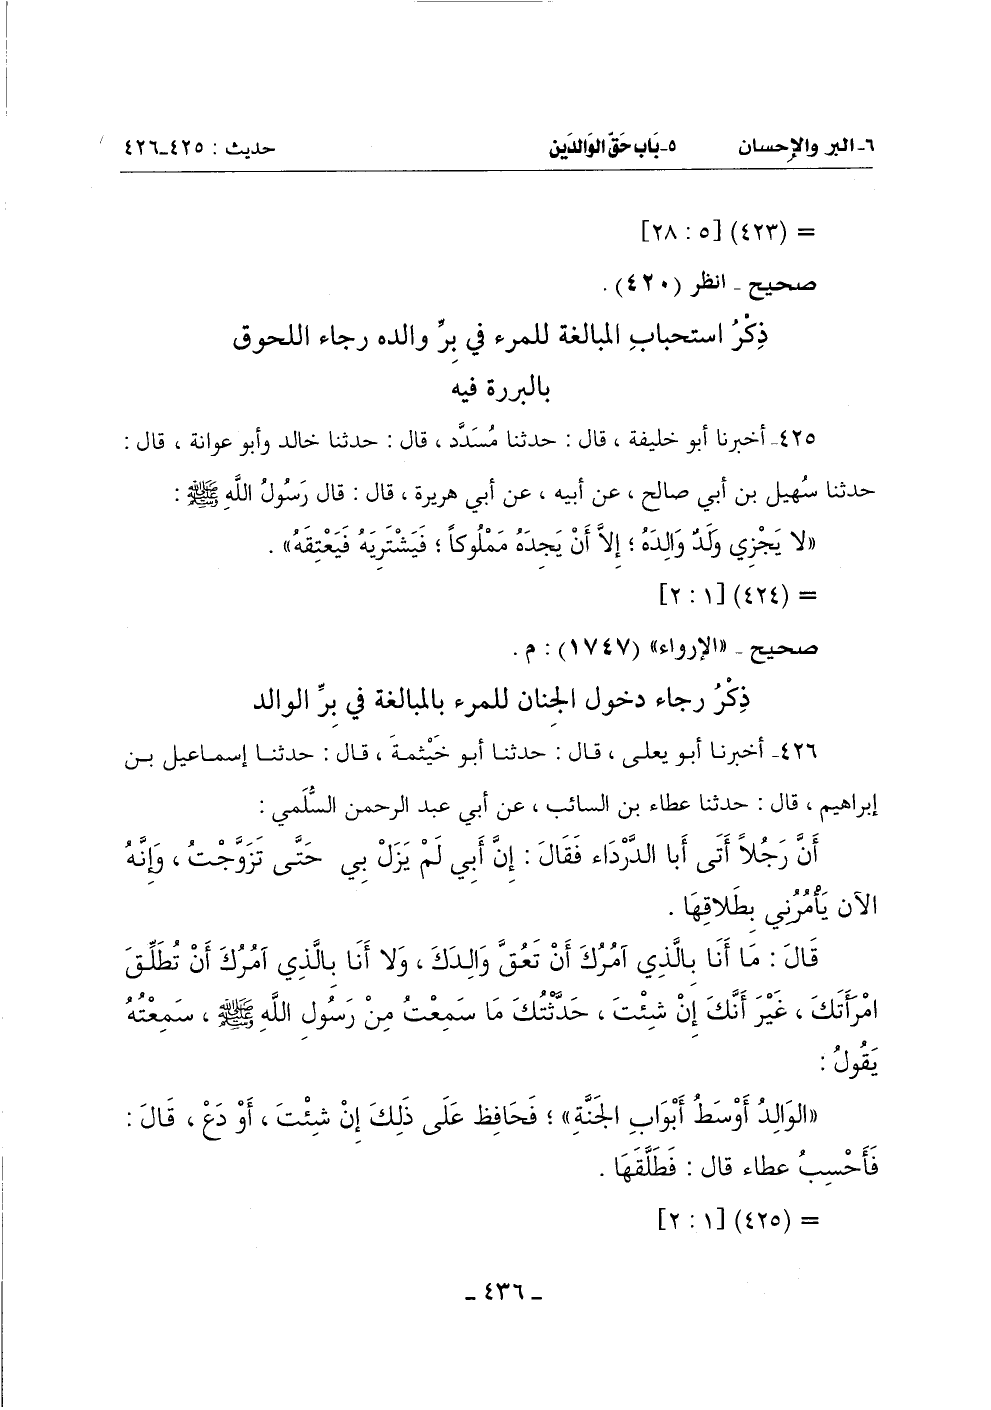 ٦- البر والإحسان ٥- بَاب حَقّ الوَالدَين حديث : ٤٢٥-٤٢٦
= (٤٢٣) [٥ : ٢٨]
صحيح - انظر (٤٢٠) .
ذِكْرُ استحبابِ المبالغة للمرء في بِرِّ والده رجاء اللحوق
بالبررة فيه
٤٢٥- أخبرنا أبو خليفة ، قال : حدثنا مُسَدَّد ، قال : حدثنا خالد وأبو عوانة ، قال :
حدثنا سُهيل بن أبي صالح ، عن أبيه ، عن أبي هريرة ، قال : قال رَسُولُ اللَّهِ ﷺ :
«لا يَجْزِي وَلَدٌ وَالِدَهُ ؛ إلاَّ أَنْ يَجِدَهُ مَمْلُوكاً ؛ فَيَشْتَرِيَهُ فَيَعْتِقَهُ» .
= (٤٢٤) [١ : ٢]
صحيح - «الإرواء» (١٧٤٧) : م .
ذِكْرُ رجاء دخول الجِنان للمرء بالمبالغة في بِرِّ الوالد
٤٢٦- أخبرنا أبو يعلى ، قال : حدثنا أبو خَيْثمةَ ، قال : حدثنا إسماعيل بن
إبراهيم ، قال : حدثنا عطاء بن السائب ، عن أبي عبد الرحمن السُّلَمي :
أَنَّ رَجُلاً أَتَى أَبا الدَّرْدَاء فَقَالَ : إِنَّ أَبي لَمْ يَزَلْ بِي حَتَّى تَزَوَّجْتُ ، وَإِنَّهُ
الآن يَأْمُرُنِي بِطَلاقِهَا .
قَالَ : مَا أَنَا بِالَّذِي آمُرُكَ أَنْ تَعُقَّ وَالِدَكَ ، وَلا أَنَا بِالَّذِي آمُرُكَ أَنْ تُطَلِّقَ
امْرَأَتَكَ ، غَيْرَ أَنَّكَ إِنْ شِئْتَ ، حَدَّثْتُكَ مَا سَمِعْتُ مِنْ رَسُولِ اللَّهِ ﷺ ، سَمِعْتُهُ
يَقُولُ :
«الوَالِدُ أَوْسَطُ أَبْوَابِ الجَنَّةِ» ؛ فَحَافِظ عَلَى ذَلِكَ إِنْ شِئْتَ ، أَوْ دَعْ ، قَالَ :
فَأَحْسِبُ عطاء قال : فَطَلَّقَهَا .
= (٤٢٥) [١ : ٢]
- ٤٣٦ -